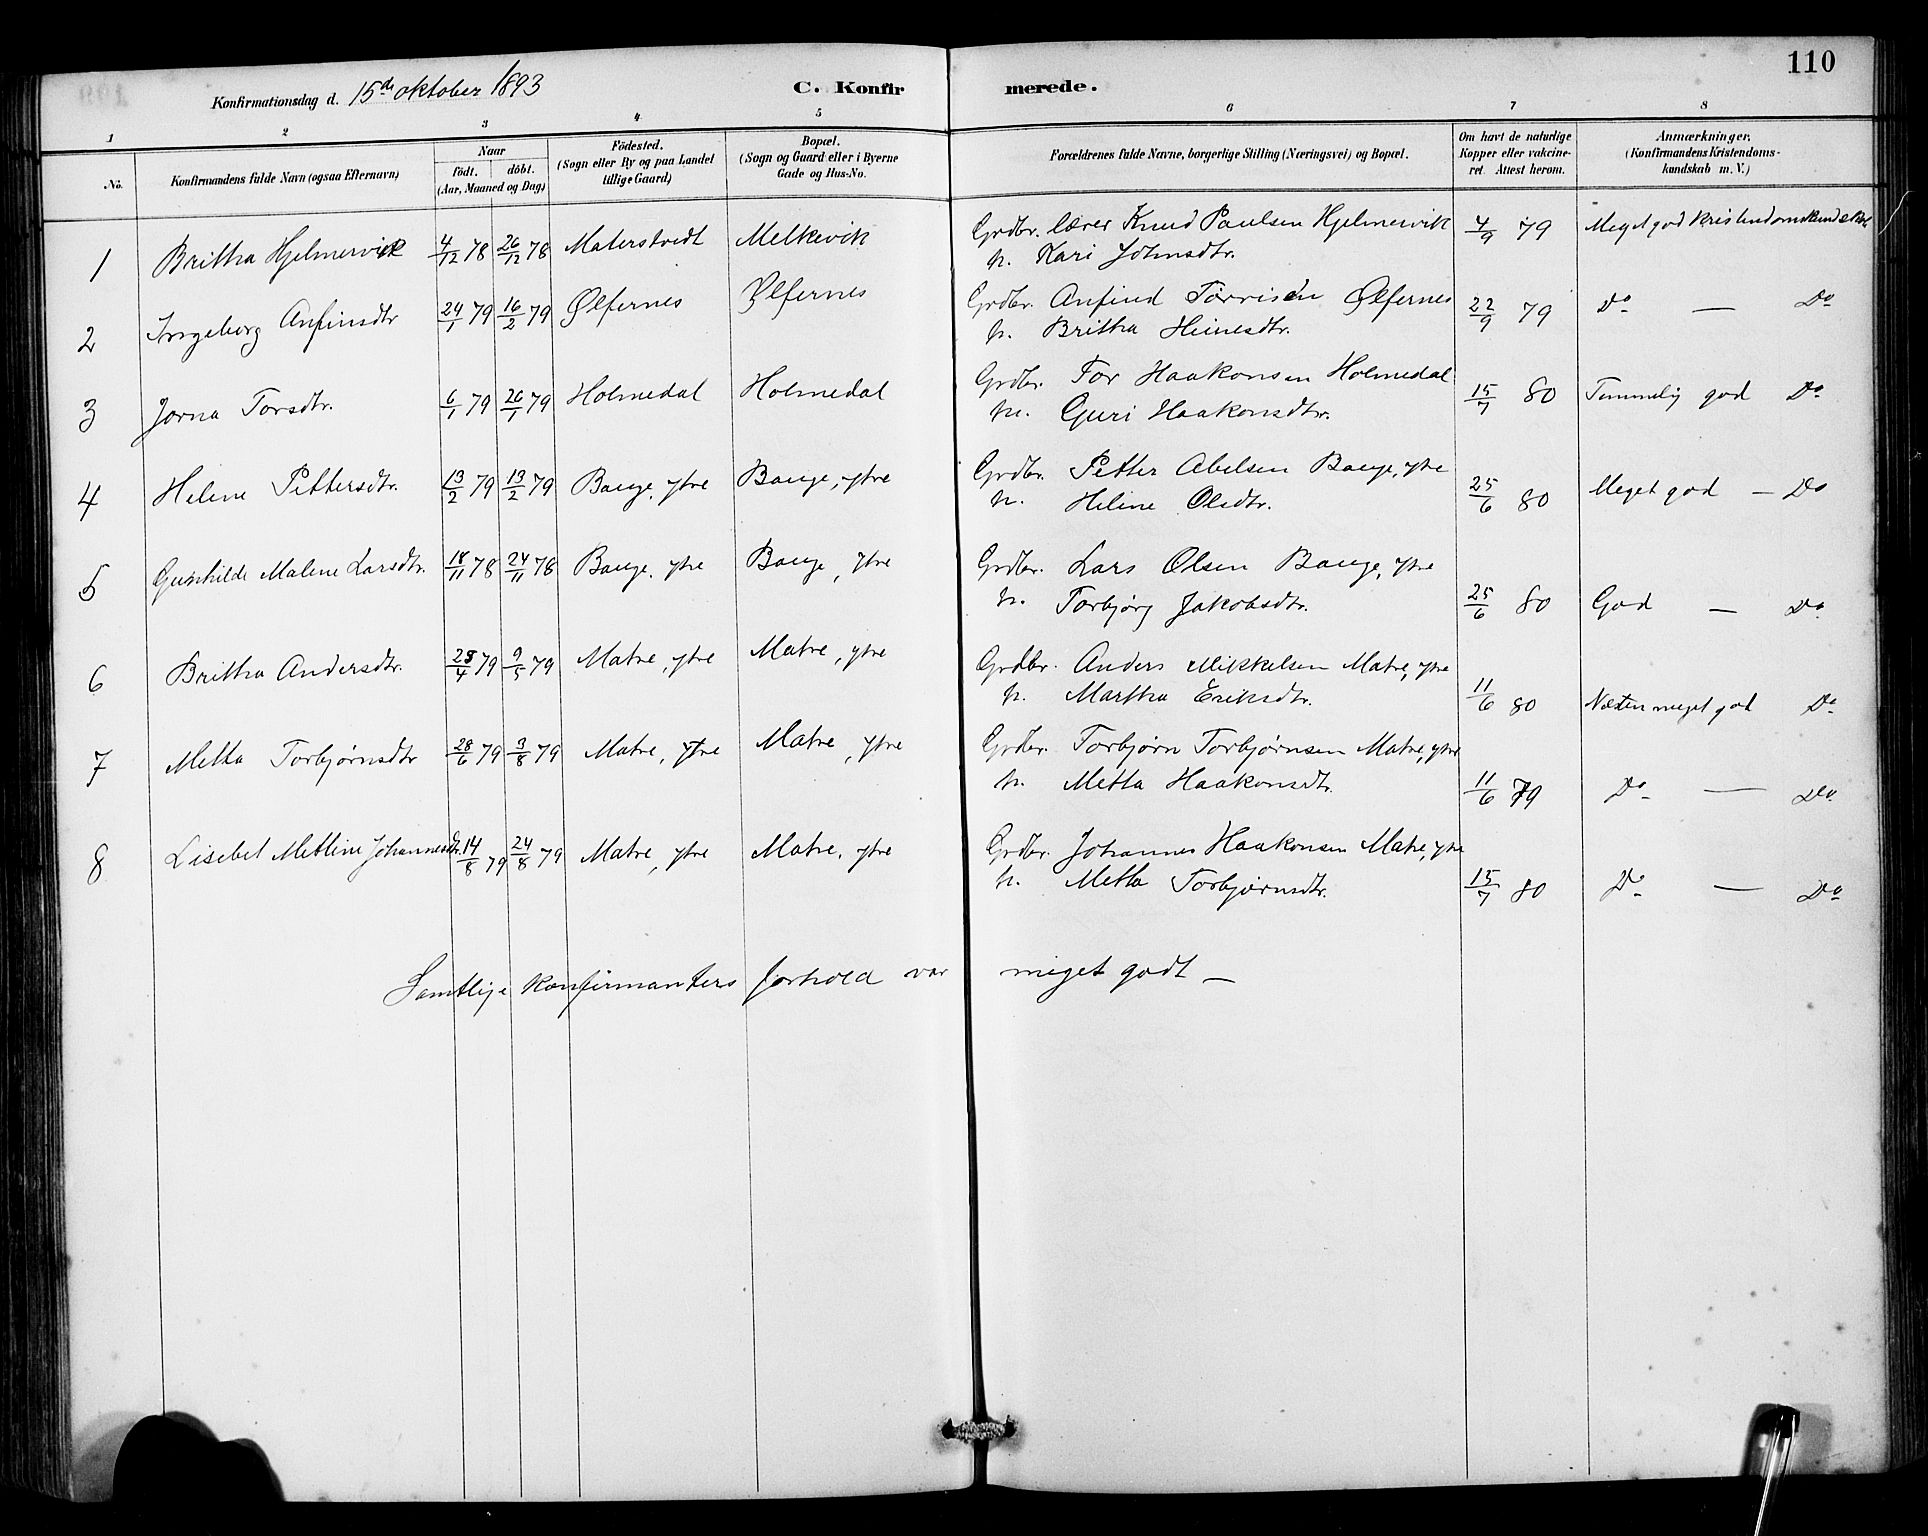 110
Konfirmationsdag d. 15de oktober 1893 C. Konfirmerede.
1 2 3 4 5 6 7 8
No. Konfirmandens fulde Navn (ogsaa Efternavn) Naar födt. döbt. (Aar, Maaned og Dag) Födested. (Sogn eller By og paa Landet tillige Gaard) Bopæl. (Sogn og Gaard eller i Byerne Gade og Hus-No. Forældrenes fulde Navne, borgerlige Stilling (Næringsvei) og Bopæl. Om havt de naturlige Kopper eller vakcineret. Attest herom. Anmærkninger. (Konfirmandens Kristendomskundskab m. V.)
1 Britha Hjelmervik 4/12 78 26/12 78 Materstvedt Melkevik Grdbr. lærer Knud Paulsen Hjelmervik 4/9 79 Meget god kristendomskundskab
h. Kari Johnsdtr.
2 Ingeborg Anfinsdtr 24/1 79 16/2 79 Ølfernes Ølfernes Grdbr. Anfind Torrisen Ølfernes 22/9 79 Do — Do
h. Britha Heinesdtr.
3 Jorna Torsdtr. 6/1 79 26/1 79 Holmedal Holmedal Grdbr. Tor Haakonsen Holmedal 15/7 80 Temmelig god Do
h. Guri Haakonsdtr.
4 Helene Pettersdtr. 13/2 79 13/2 79 Bauge, ytre Bauge, ytre Grdbr. Petter Abelsen Bauge, ytre 25/6 80 Meget god — Do
h. Heline Olsdtr.
5 Gunhilde Malene Larsdtr. 18/11 78 24/11 78 Bauge, ytre Bauge, ytre Grdbr. Lars Olsen Bauge, ytre 25/6 80 God — Do
h. Torbjørg Jakobsdtr.
6 Britha Andersdtr. 28/4 79 9/5 79 Matre, ytre Matre, ytre Grdbr. Anders Mikkelsen Matre, ytre 11/6 80 Næsten meget god Do
h. Martha Eriksdtr.
7 Metta Torbjørnsdtr 28/6 79 3/8 79 Matre, ytre Matre, ytre Grdbr. Torbjørn Torbjørnsen Matre, ytre 11/6 79 Do — Do
h. Metta Haakonsdtr.
8 Lisebet Mettine Johannesdtr. 14/8 79 24/8 79 Matre, ytre Matre, ytre Grdbr. Johannes Haakonsen Matre, ytre 15/7 80 Do — Do
h. Metta Torbjørnsdtr.
Samtlige konfirmanters forhold var meget godt —